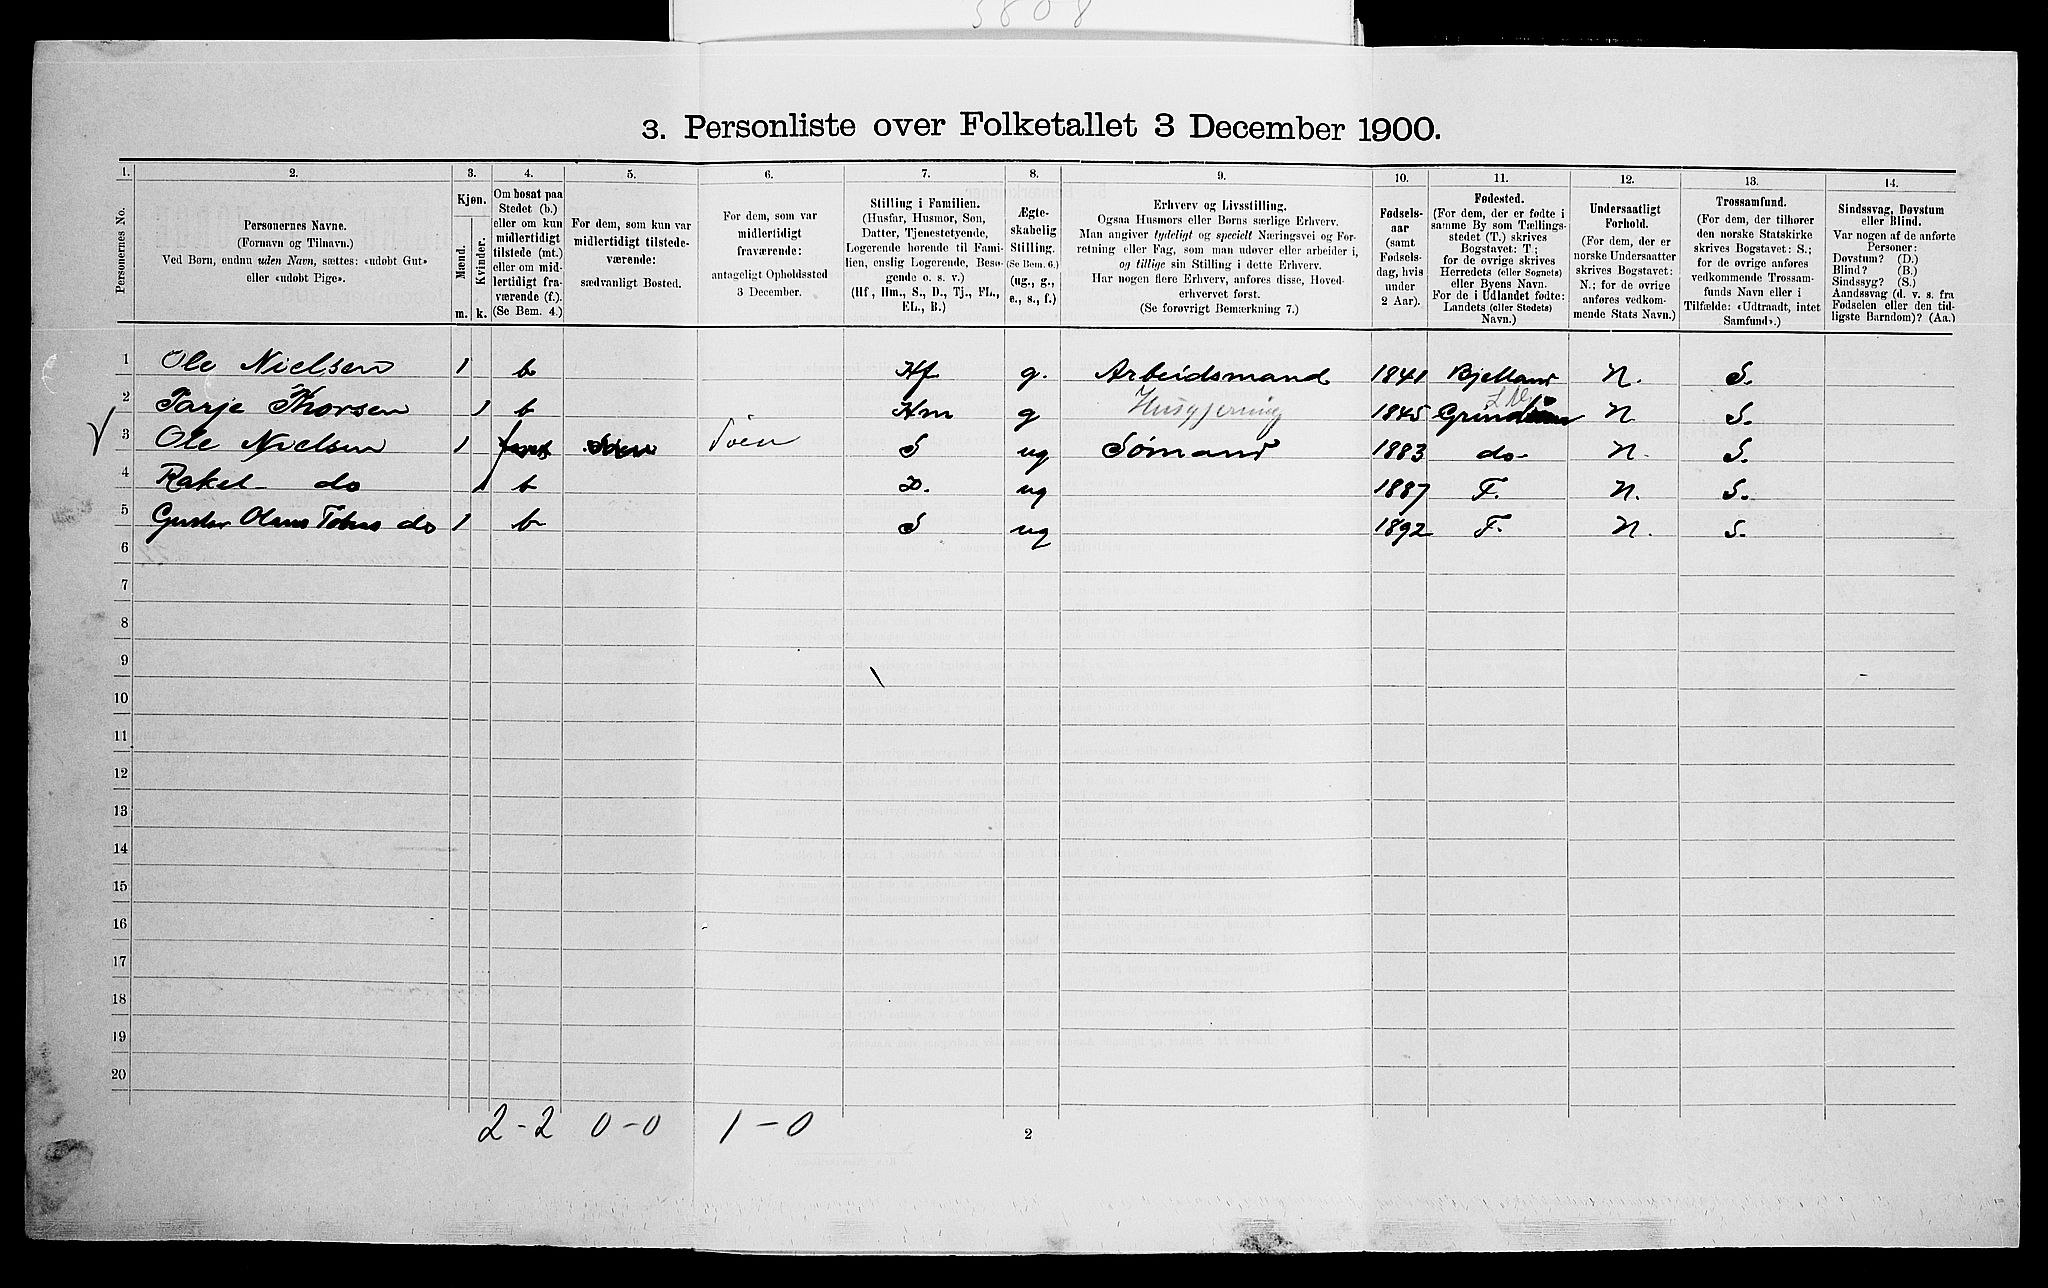 3808
3. Personliste over Folketallet 3 December 1900.
1. 2. 3. 4. 5. 6. 7. 8. 9. 10. 11. 12. 13. 14.
Personernes No.
Personernes Navne.
(Fornavn og Tilnavn.)
Ved Børn, endnu uden Navn, sættes: «udøbt Gut»
eller «udøbt Pige».
Kjøn.
Mænd.
Kvinder.
m. k.
Om bosat paa
Stedet (b.)
eller om kun
midlertidigt
tilstede (mt.)
eller om mid-
lertidigt fra-
værende (f.).
(Se Bem. 4.)
For dem, som kun var
midlertidigt tilstede-
værende:
sædvanligt Bosted.
For dem, som var
midlertidigt
fraværende:
antageligt Opholdssted
3 December.
Stilling i Familien.
(Husfar, Husmor, Søn,
Datter, Tjenestetyende,
Logerende hørende til Fami-
lien, enslig Logerende, Besø-
gende o. s. v.)
(Hf, Hm., S., D., Tj., FL.,
EL., B.)
Ægte-
skabelig
Stilling.
(Se Bem. 6.)
(ug., g.,
e., s., f.)
Erhverv og Livsstilling.
Ogsaa Husmors eller Børns særlige Erhverv.
Man angiver tydeligt og specielt Næringsvei og For-
retning eller Fag, som man udøver eller arbeider i,
og tillige sin Stilling i dette Erhverv.
Har nogen flere Erhverv, anføres disse, Hoved-
erhvervet først.
(Se forøvrigt Bemærkning 7.)
Fødsels-
aar
(samt
Fødsels-
dag, hvis
under
2 Aar).
Fødested.
(For dem, der er fødte i
samme By som Tællings-
stedet (T.) skrives
Bogstavet: T;
for de øvrige skrives
Herredets (eller Sognets)
eller Byens Navn.
For de i Udlandet fødte:
Landets (eller Stedets)
Navn.)
Undersaatligt
Forhold.
(For dem, der er
norske Undersaatter
skrives Bogstavet:
N.; for de øvrige
anføres vedkom-
mende Stats Navn.)
Trossamfund.
(For dem, der tilhører
den norske Statskirke
skrives Bogstavet: S.;
for de øvrige anføres
vedkommende Trossam-
funds Navn eller i
Tilfælde: «Udtraadt, intet
Samfund».)
Sindssvag, Døvstum
eller Blind.
Var nogen af de anførte
Personer:
Døvstum? (D.)
Blind? (B.)
Sindssyg? (S.)
Aandssvag (d. v. s. fra
Fødselen eller den tid-
ligste Barndom)? (Aa.)
1 Ole Nielsen 1 b Hf g. Arbeidsmand 1841 Bjelland N. S.
2 Tarje Thorsen 1 b Hm g Husgjerning 1845 N S.
3 Ole Nielsen 1 Søen S ug Sømand 1883 do N. S.
4 Rakel do 1 b D. ug 1887 F. N. S.
5 Gustav Olaus Tobias do 1 b S ug 1892 F. N. S.
6
7
8
9
10
11
12
13
14
15
16
17
18
19
20
2-2 0-0 1-0
2